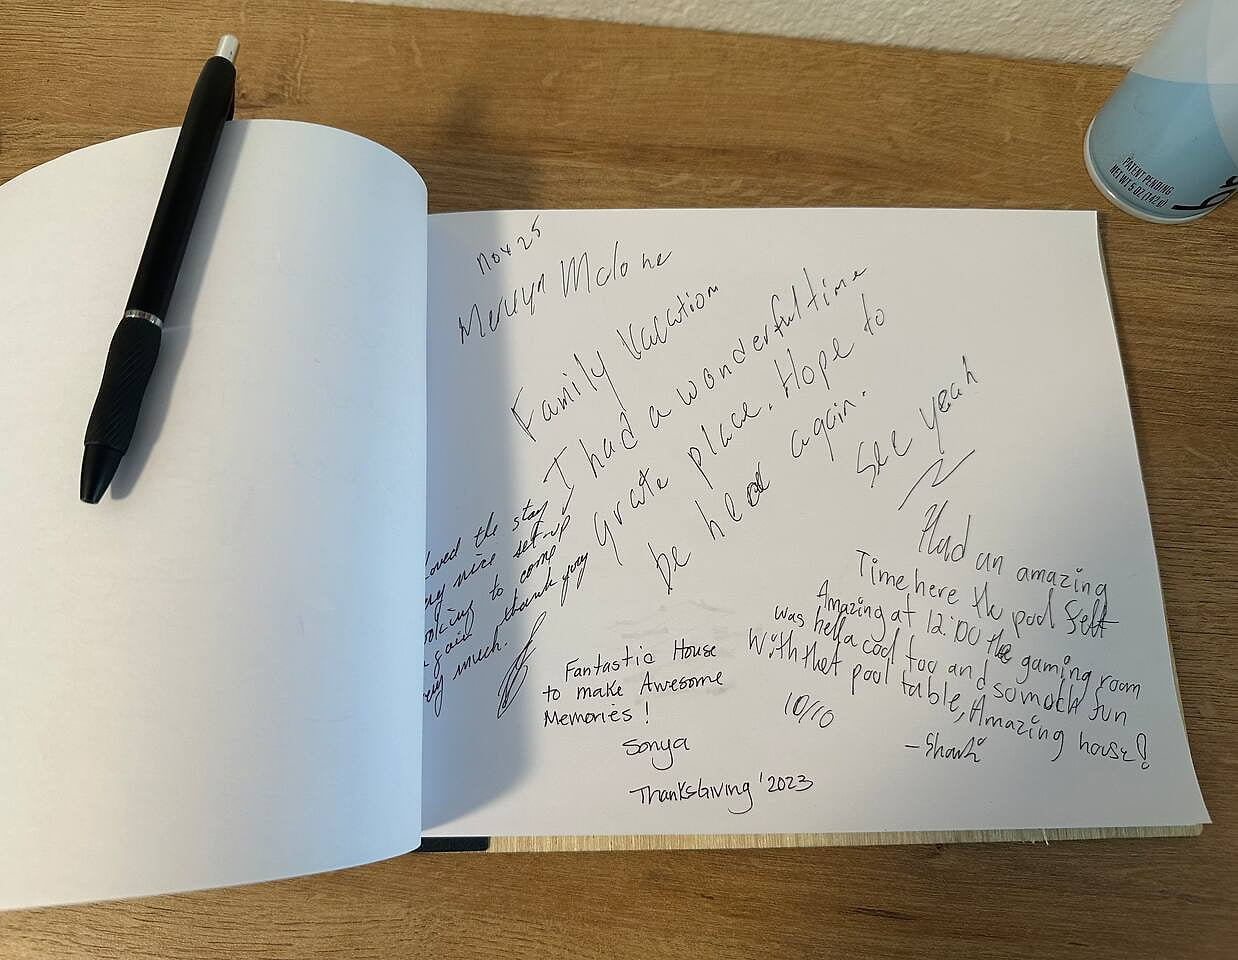 Nov 25
Mervyn Malone
Family Vacation
I had a wonderful time
grate place. Hope to
be here again.
See yeah
Loved the stay
nice set-up
to come
thank you
much.
Fantastic House
to make Awesome
Memories!
Sonya
ThanksGiving '2023
Had an amazing
Time here the pool felt
Amazing at 12:00 the gaming room
was hella cool too and so much fun
With that pool table, Amazing house!
10/10
PATENT PENDING
NET WT 5 OZ (142g)